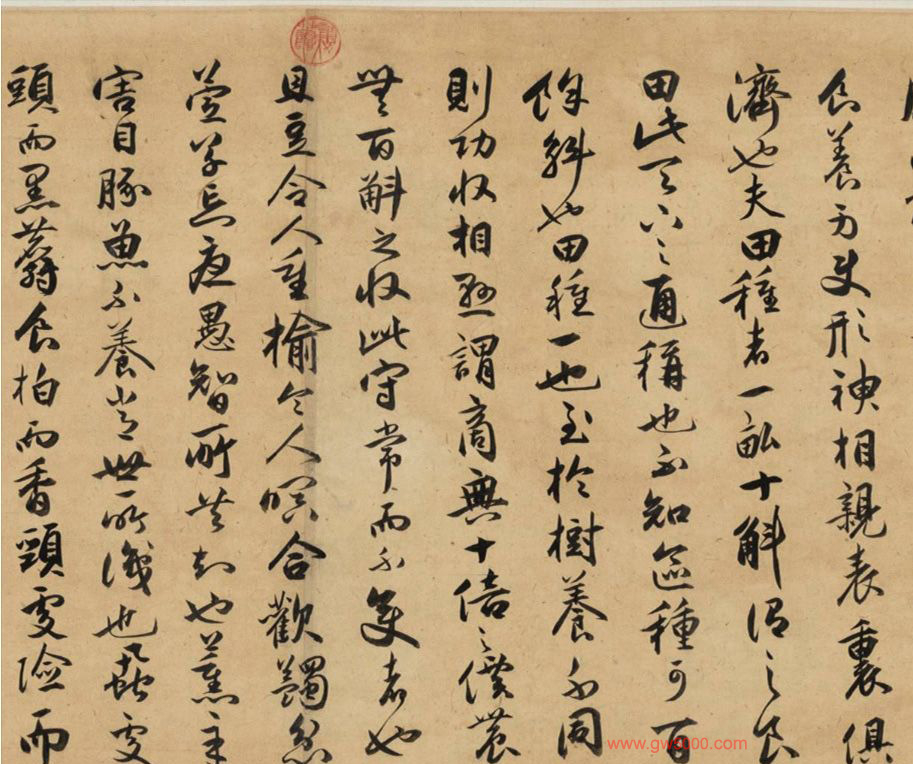 食養身使形神相親表裏俱
濟也夫田種者一畝十斛謂之良
田此天下之通稱也不知區種可百
餘斛也田種一也至於樹養不同
則功收相懸謂商無十倍之價農
無百斛之收此守常而不變者也
且豆令人重榆令人暝合歡蠲忿
萱草忘憂愚智所共知也薰辛
害目豚魚不養常世所識也虱處
頭而黑麝食柏而香頸處險而
www.gw5000.com